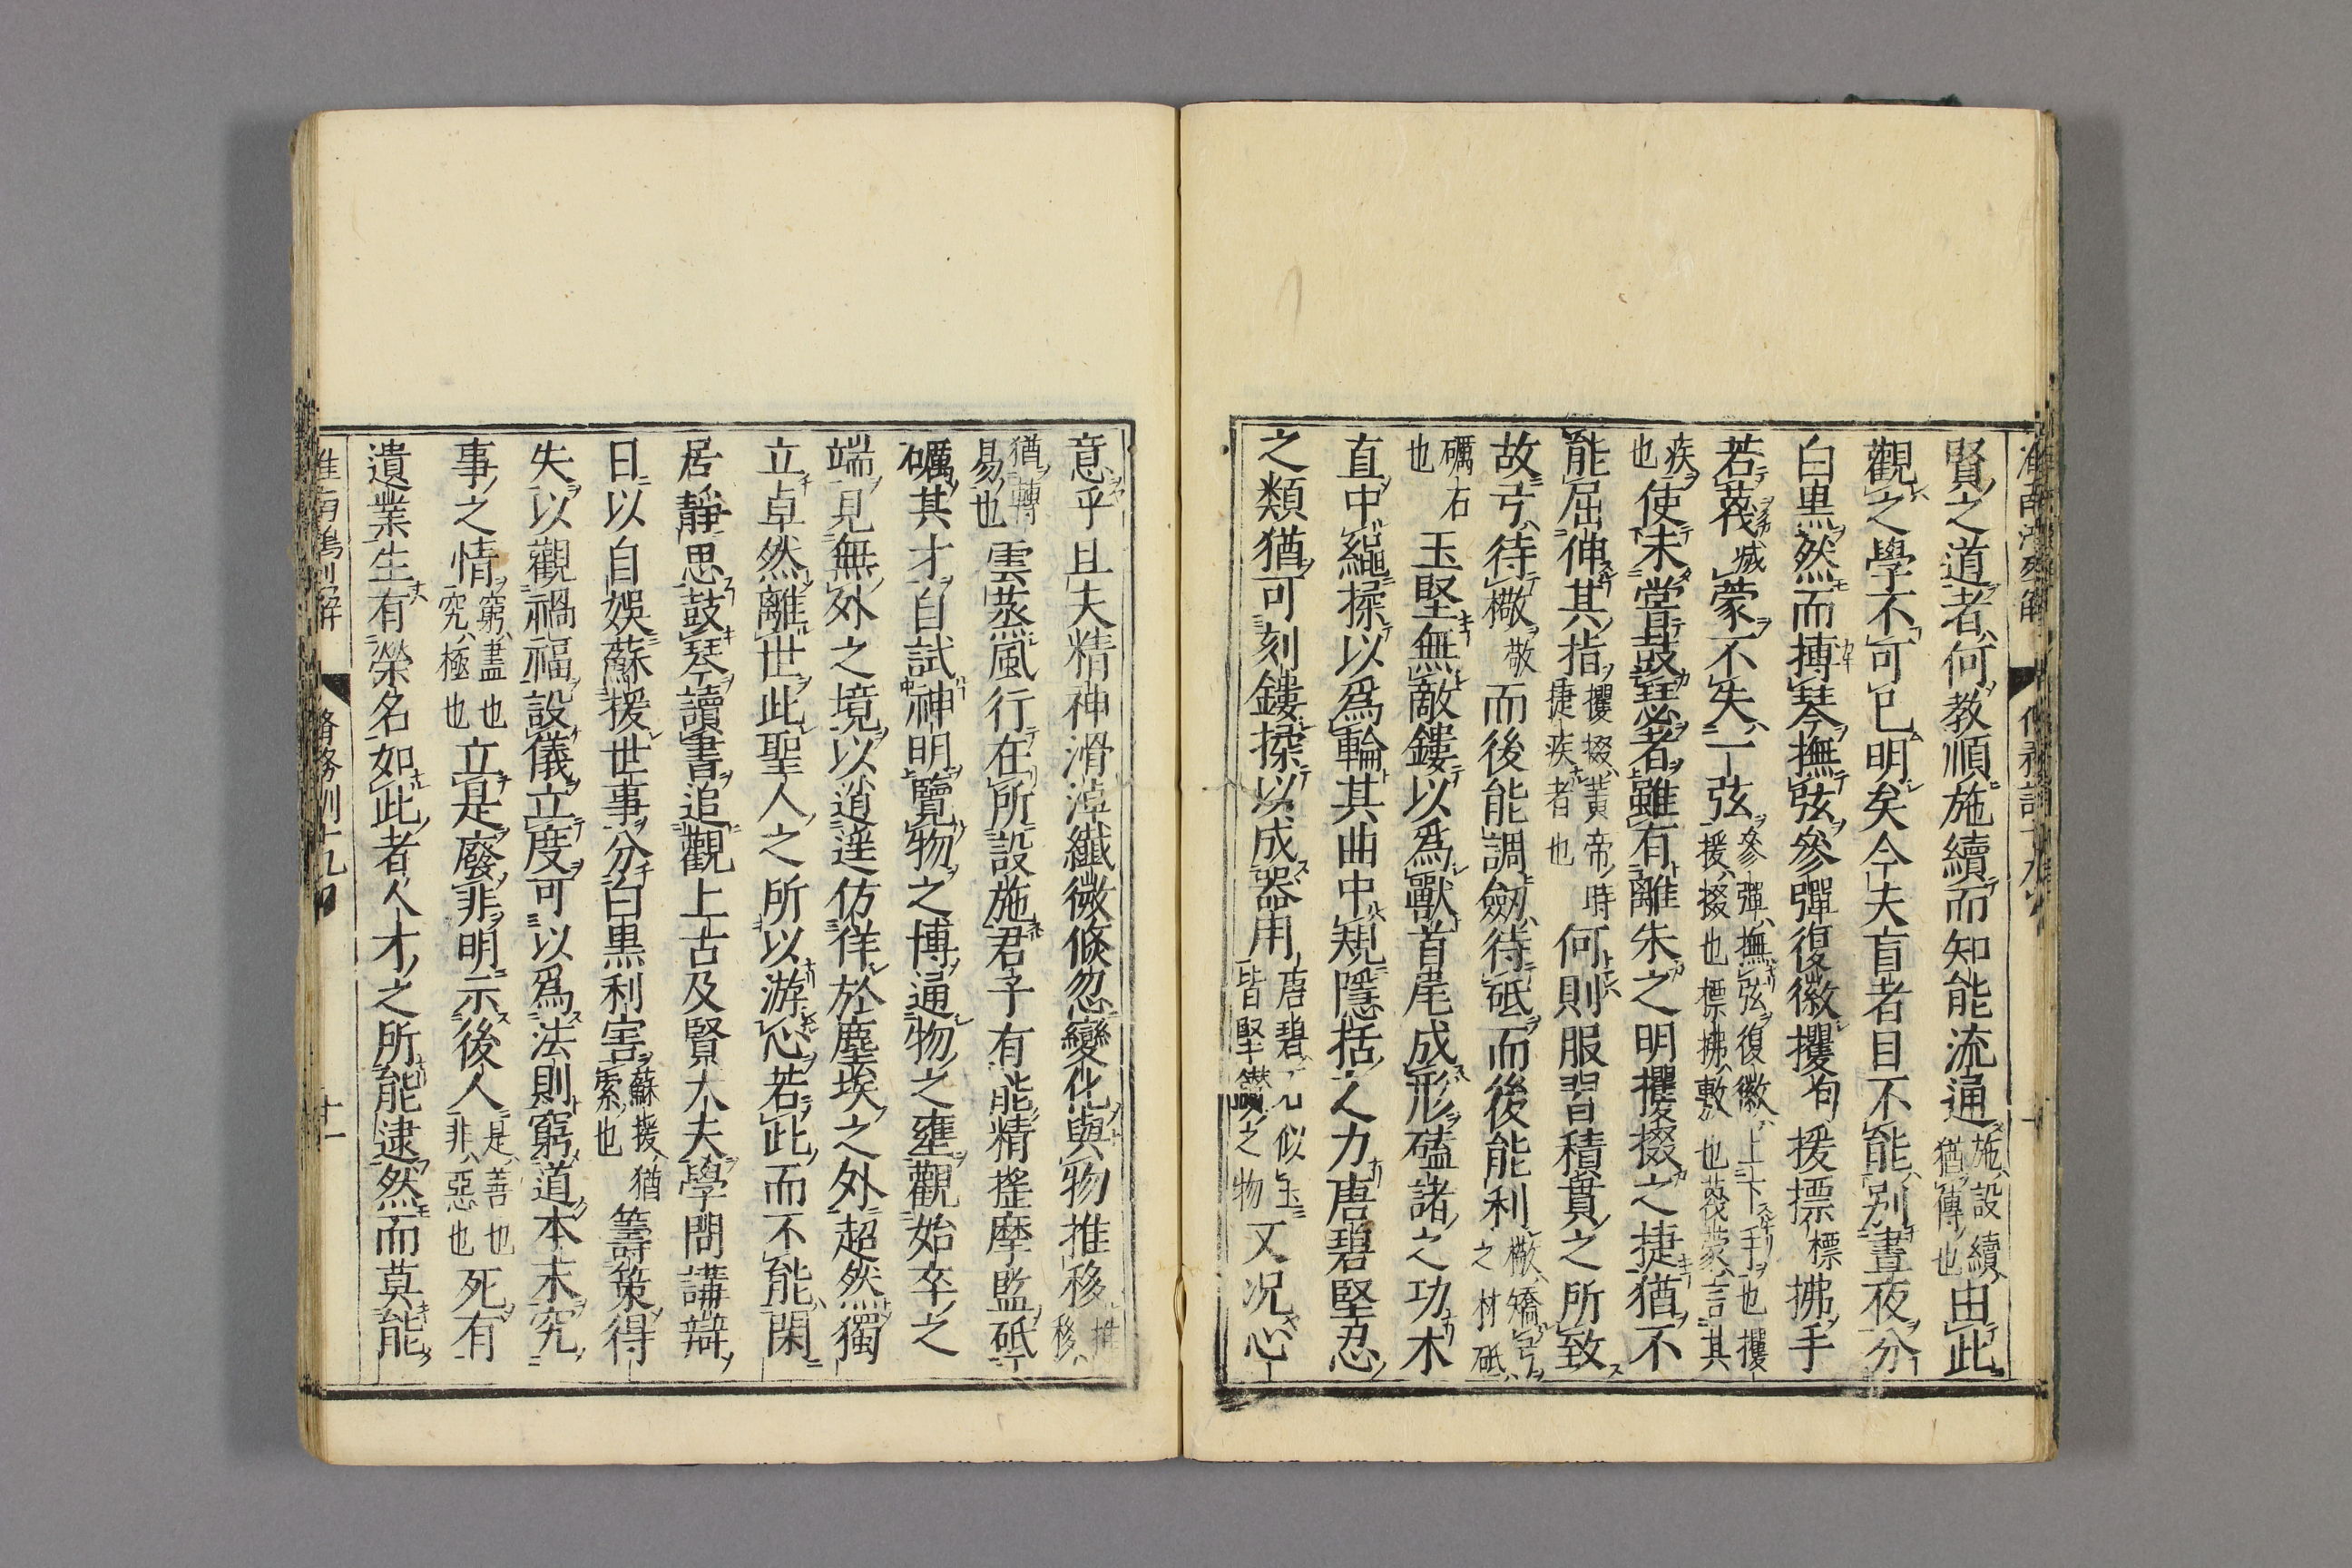 賢之道者何教順施續而知能流通施設續猶傳也由此
觀之學不可已明矣今夫盲者目不能別晝夜分
白黒然而搏琴撫弦參彈復徽攫援摽標拂手
若薎滅蒙不失一弦參彈撫弦復徽上下手也攫援掇也標拂敷也薎蒙言其
疾也使未嘗鼓瑟者雖有離朱之明攫掇之捷猶不
能屈伸其指攫掇黃帝時捷疾者也何則服習積貫之所致
故弓待檄敬而後能調劒待砥而後能利檄矯弓之材砥
礪石也玉堅無敵鏤以爲獸首尾成形礛諸之功木
直中繩揉以爲輪其曲中規隱括之力唐碧堅忍
之類猶可刻鏤揉以成器用唐碧石似玉皆堅鑽之物又况心
意乎且夫精神滑淖纖微倏忽變化與物推移推移
猶轉易也雲蒸風行在所設施君子有能精搖摩監砥
礪其才自試神明覽物之博通物之壅觀始卒之
端見無外之境以逍遥仿佯於塵埃之外超然獨
立卓然離世此聖人之所以游心若此而不能閑
居靜思鼓琴讀書追觀上古及賢大夫學問講辯
日以自娯蘇援世事分白黒利害蘇援猶索也籌策得
失以觀禍福設儀立度可以爲法則窮道本末究
事之情窮盡也究極也立是廢非明示後人是善也非惡也死有
遺業生有榮名如此者人才之所能逮然而莫能
脩務訓十九 十一